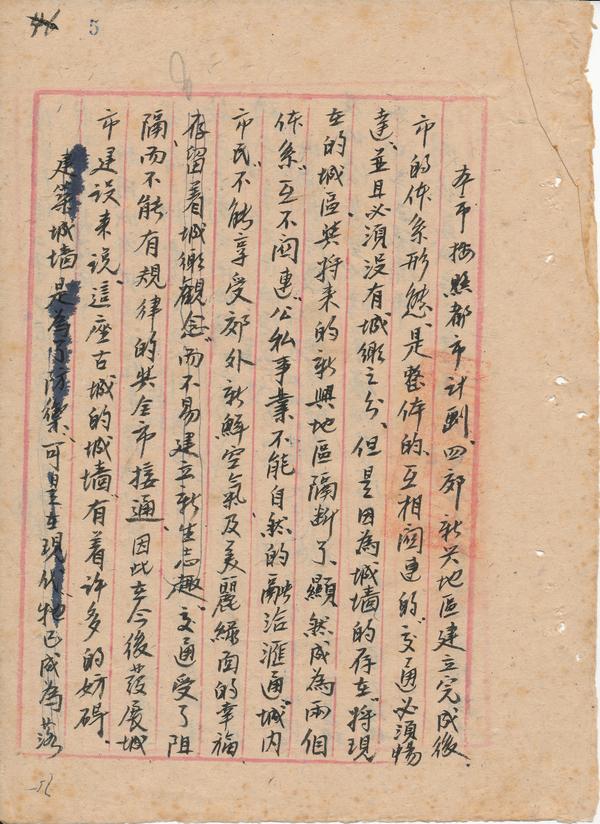 5
本市按照都市計劃四郊新兴地區建立完成後、
市的体系形態、是整体的、互相関連的、交通必須暢
達、並且必須没有城鄉之分、但是因為城墙的存在、將現
在的城區與將来的新興地區隔断了、顯然成為兩個
体系、互不関連、公私事業不能自然的融洽滙通、城内
市民、不能享受郊外新鮮空氣及美麗綠面的幸福、
存留着城鄉觀念、而不易建立新生志趣、交通受了阻
隔、而不能有規律的與全市接通、因此在今後發展城
市建設来說、這座古城的城墙、有着許多的妨碍、
建築城墙是為了防禦、可是在現代、牠已成為落